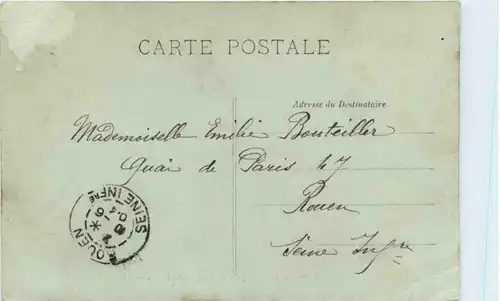 CARTE POSTALE
Adresse du Destinataire
Mademoiselle Emilie Bouteiller
Quai de Paris 47
Rouen
Seine Infre
ROUEN
SEINE INFRE
04